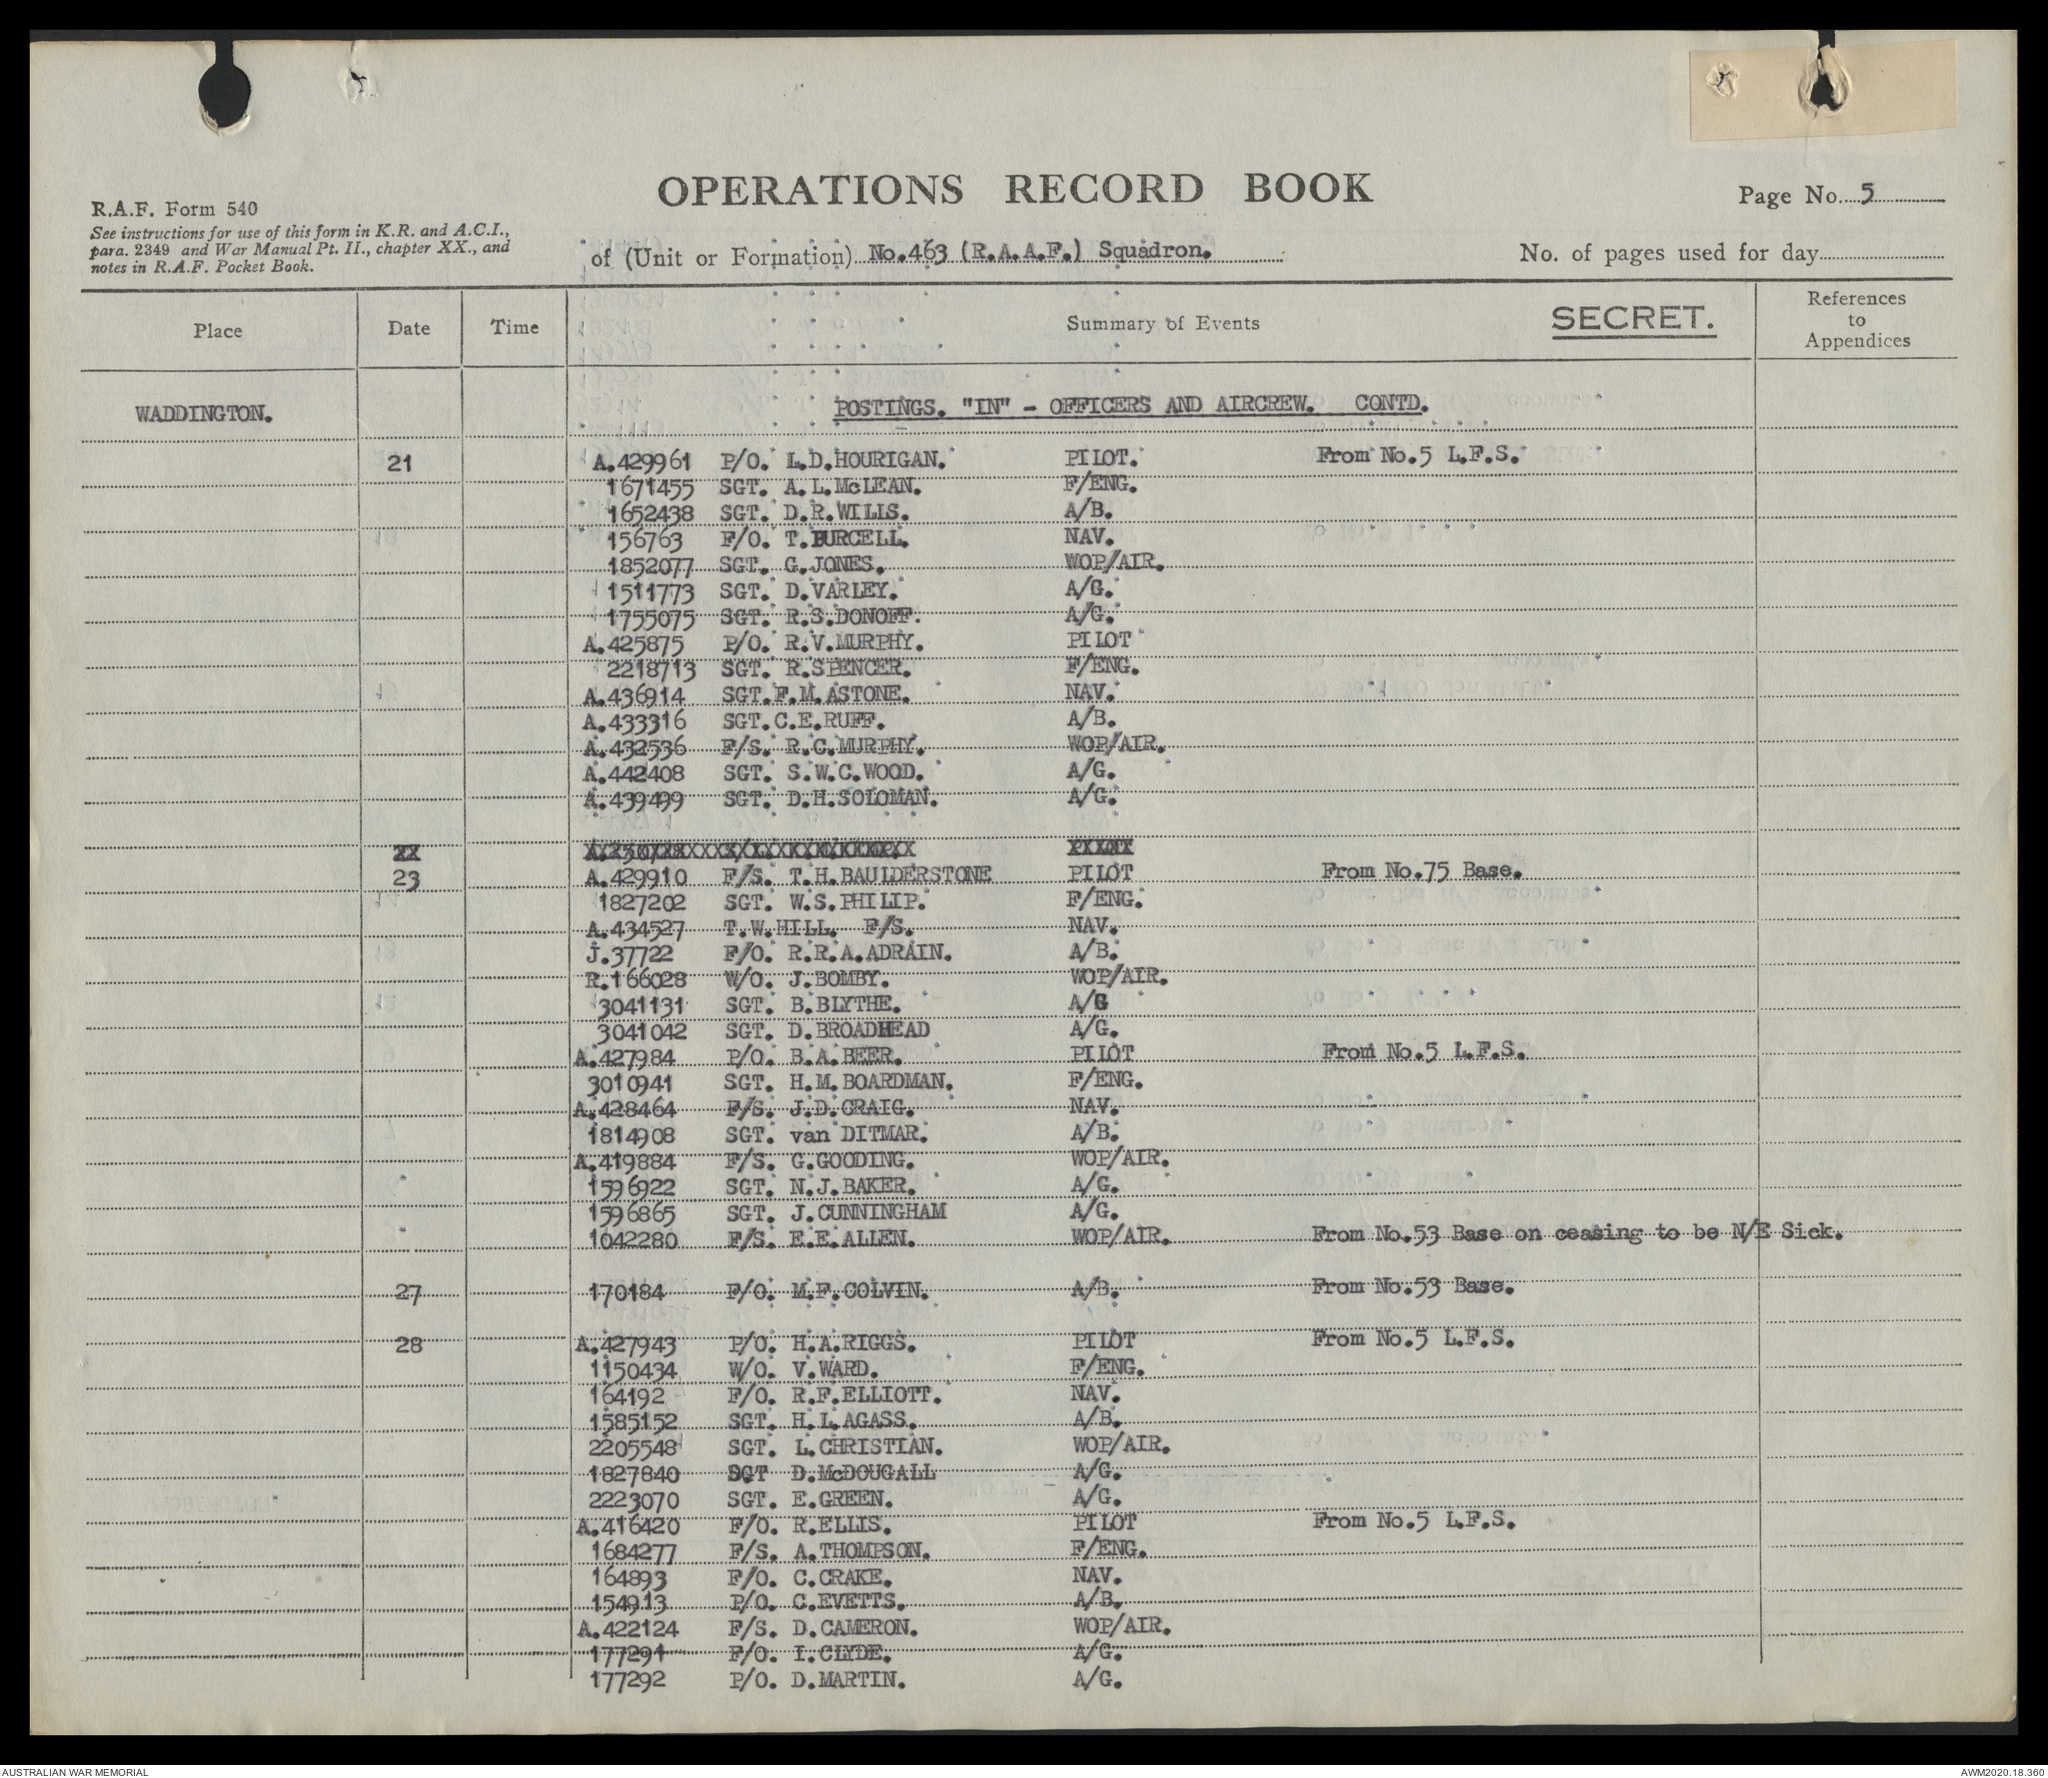 OPERATIONS RECORD BOOK
Page No. 5
R.A.F. Form 540
See instructions for use of this form in K.R. and A.C.I.,
para. 2349 and War Manual Pt. II., chapter XX., and
notes in R.A.F. Pocket Book.
of (Unit or Formation) No.463 (R.A.A.F.) Squadron.
No. of pages used for day
Place Date Time Summary of Events SECRET. References to Appendices
WADDINGTON. POSTINGS. "IN" - OFFICERS AND AIRCREW. CONTD.
21 A.429961 P/O. L.D.HOURIGAN. PILOT. From No.5 L.F.S.
1671455 SGT. A.L.McLEAN. F/ENG.
1652438 SGT. D.R.WILIS. A/B.
156763 F/O. T.BURCELL. NAV.
1852077 SGT. G.JONES. WOP/AIR.
1511773 SGT. D.VARLEY. A/G.
1755075 SGT. R.S.DONOFF. A/G.
A.425875 P/O. R.V.MURPHY. PILOT
2218713 SGT. R.SPENCER. F/ENG.
A.436914 SGT.F.M.ASTONE. NAV.
A.433316 SGT.C.E.RUFF. A/B.
A.432536 F/S. R.C.MURPHY. WOP/AIR.
A.442408 SGT. S.W.C.WOOD. A/G.
A.439499 SGT. D.H.SOLOMAN. A/G.
23 A.429910 F/S. T.H.BAULDERSTONE PILOT From No.75 Base.
1827202 SGT. W.S.PHILIP. F/ENG.
A.434527 T.W.HILL. F/S. NAV.
J.37722 F/O. R.R.A.ADRAIN. A/B.
R.166028 W/O. J.BOMBY. WOP/AIR.
3041131 SGT. B.BLYTHE. A/G
3041042 SGT. D.BROADHEAD A/G.
A.427984 P/O. B.A.BEER. PILOT From No.5 L.F.S.
3010941 SGT. H.M.BOARDMAN. F/ENG.
A.428464 F/S. J.D.CRAIG. NAV.
1814908 SGT. van DITMAR. A/B.
A.419884 F/S. G.GOODING. WOP/AIR.
1596922 SGT. N.J.BAKER. A/G.
1596865 SGT. J.CUNNINGHAM A/G.
1042280 F/S. E.E.ALLEN. WOP/AIR. From No.53 Base on ceasing to be N/E Sick.
27 170184 F/O. M.F.COLVIN. A/B. From No.53 Base.
28 A.427943 P/O. H.A.RIGGS. PILOT From No.5 L.F.S.
1150434 W/O. V.WARD. F/ENG.
164192 F/O. R.F.ELLIOTT. NAV.
1585152 SGT. H.L.AGASS. A/B.
2205548 SGT. L.CHRISTIAN. WOP/AIR.
1827840 SGT D.McDOUGALL A/G.
2223070 SGT. E.GREEN. A/G.
A.416420 F/O. R.ELLIS. PILOT From No.5 L.F.S.
1684277 F/S. A.THOMPSON. F/ENG.
164893 F/O. C.CRAKE. NAV.
154913 P/O. C.EVETTS. A/B.
A.422124 F/S. D.CAMERON. WOP/AIR.
177291 F/O. I.CLYDE. A/G.
177292 P/O. D.MARTIN. A/G.
AUSTRALIAN WAR MEMORIAL AWM2020.18.360